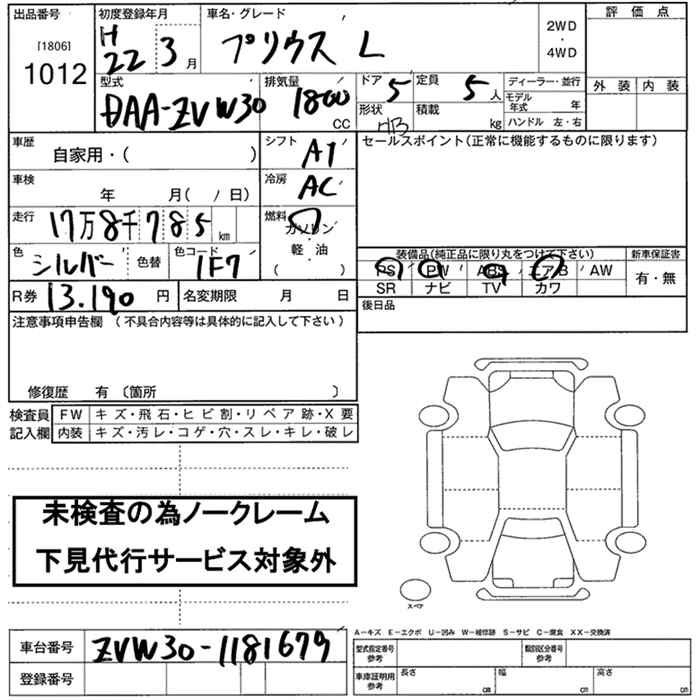 出品番号 初度登録年月 車名・グレード 評価点
[1806] H 22 3 月 プリウス L 2WD・4WD
1012
型式 排気量 ドア 5 定員 5 人 ディーラー・並行 外装 内装
DAA-ZVW30 1800 CC 形状 H/B 積載 kg モデル年式 年
ハンドル 左・右
車歴 自家用・( ) シフト AT セールスポイント(正常に機能するものに限ります)
車検 年 月( / 日) 冷房 AC
走行 17万8千785 km 燃料 ガソリン・軽・油 ( )
色 シルバー 色替 色コード 1F7 装備品(純正品に限り丸をつけて下さい) 新車保証書
PS PW ABS エアB AW 有・無
R券 13.190 円 名変期限 月 日 SR ナビ TV カワ
注意事項申告欄 (不具合内容等は具体的に記入して下さい) 後日品
修復歴 有 〔箇所 〕
検査員記入欄 FW キズ・飛石・ヒビ割・リペア跡・X要
内装 キズ・汚レ・コゲ・穴・スレ・キレ・破レ
未検査の為ノークレーム
下見代行サービス対象外
スペア
A-キズ E-エクボ U-凹み W-補修跡 S-サビ C-腐食 XX-交換済
車台番号 ZVW30-1181679 型式指定番号 参考 類別区分番号 参考
登録番号 車庫証明用 参考 長さ cm 幅 cm 高さ cm